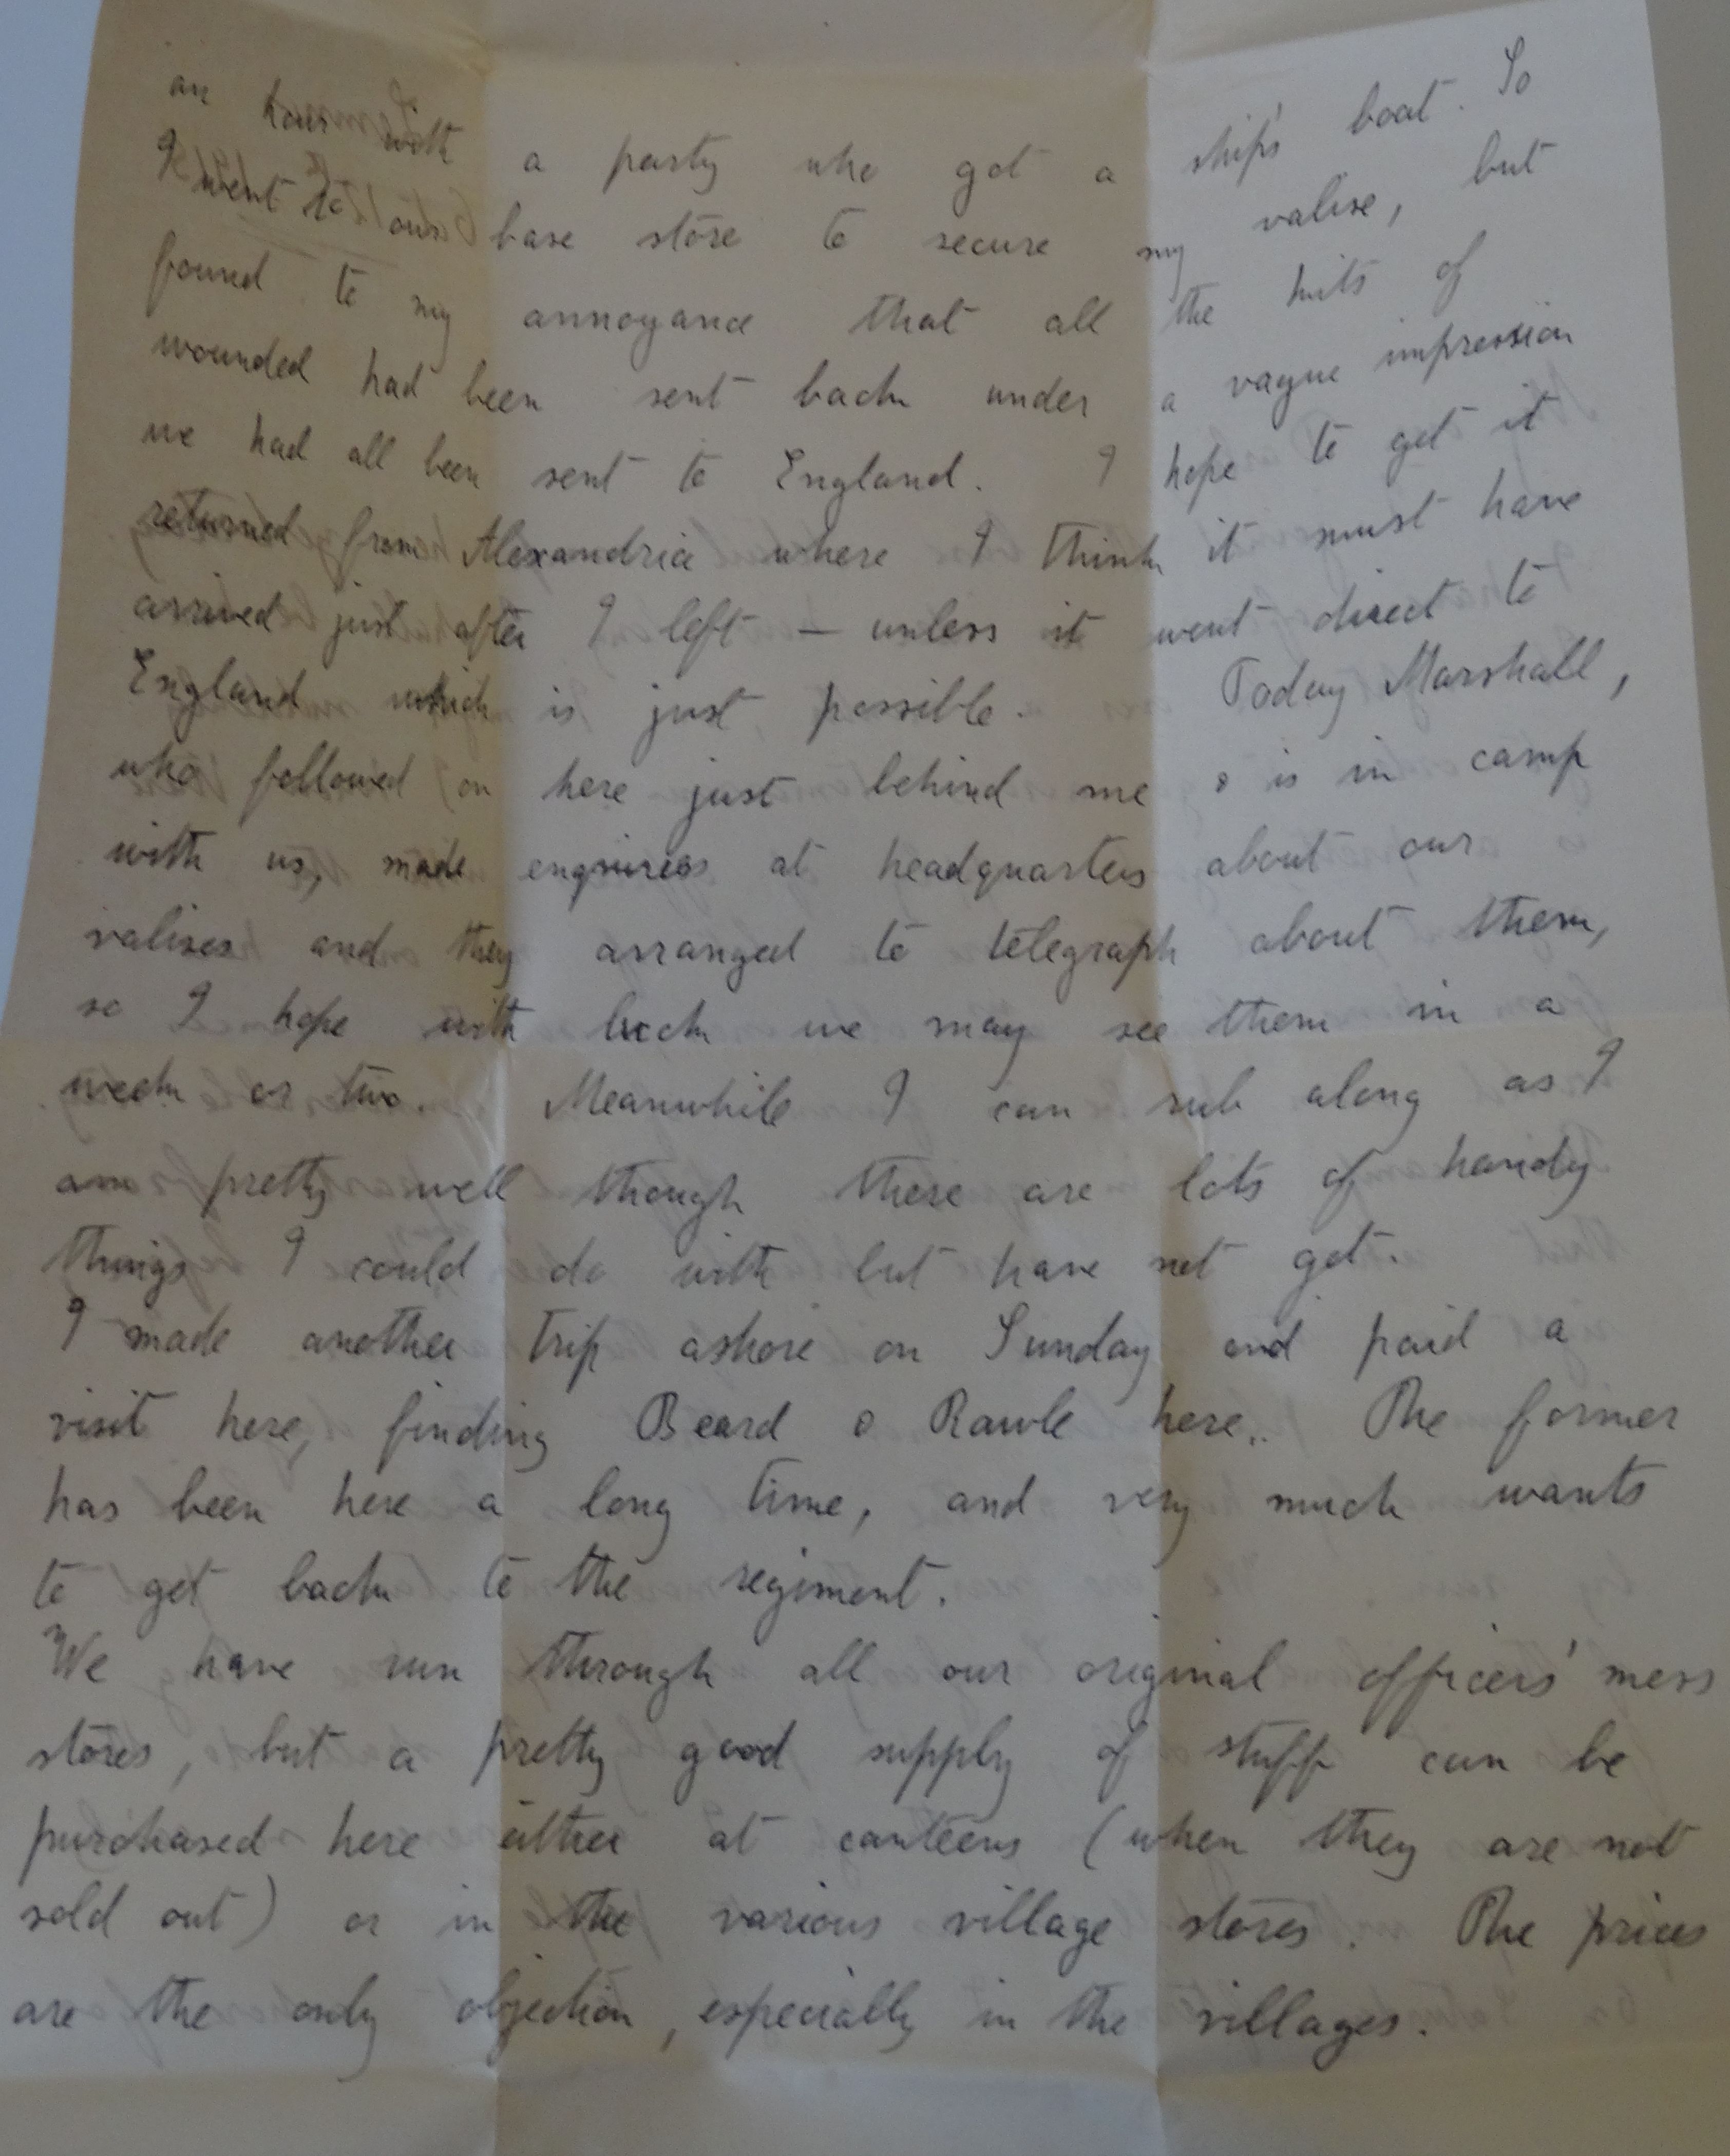 an hour with a party who got a ship's boat. So
I went to our base store to secure my valise, but
found to my annoyance that all the kits of
wounded had been sent back under a vague impression
we had all been sent to England. I hope to get it
returned from Alexandria where I think it must have
arrived just after I left — unless it went direct to
England which is just possible. Today Marshall,
who followed on here just behind me & is in camp
with us, made enquiries at headquarters about our
valises and they arranged to telegraph about them,
so I hope with luck we may see them in a
week or two. Meanwhile I can rub along as I
am pretty well though there are lots of handy
things I could do with but have not got.
I made another trip ashore on Sunday and paid a
visit here, finding Beard & Rawle here. The former
has been here a long time, and very much wants
to get back to the regiment.
We have run through all our original officers' mess
stores, but a pretty good supply of stuff can be
purchased here either at canteens (when they are not
sold out) or in the various village stores. The prices
are the only objection, especially in the villages.